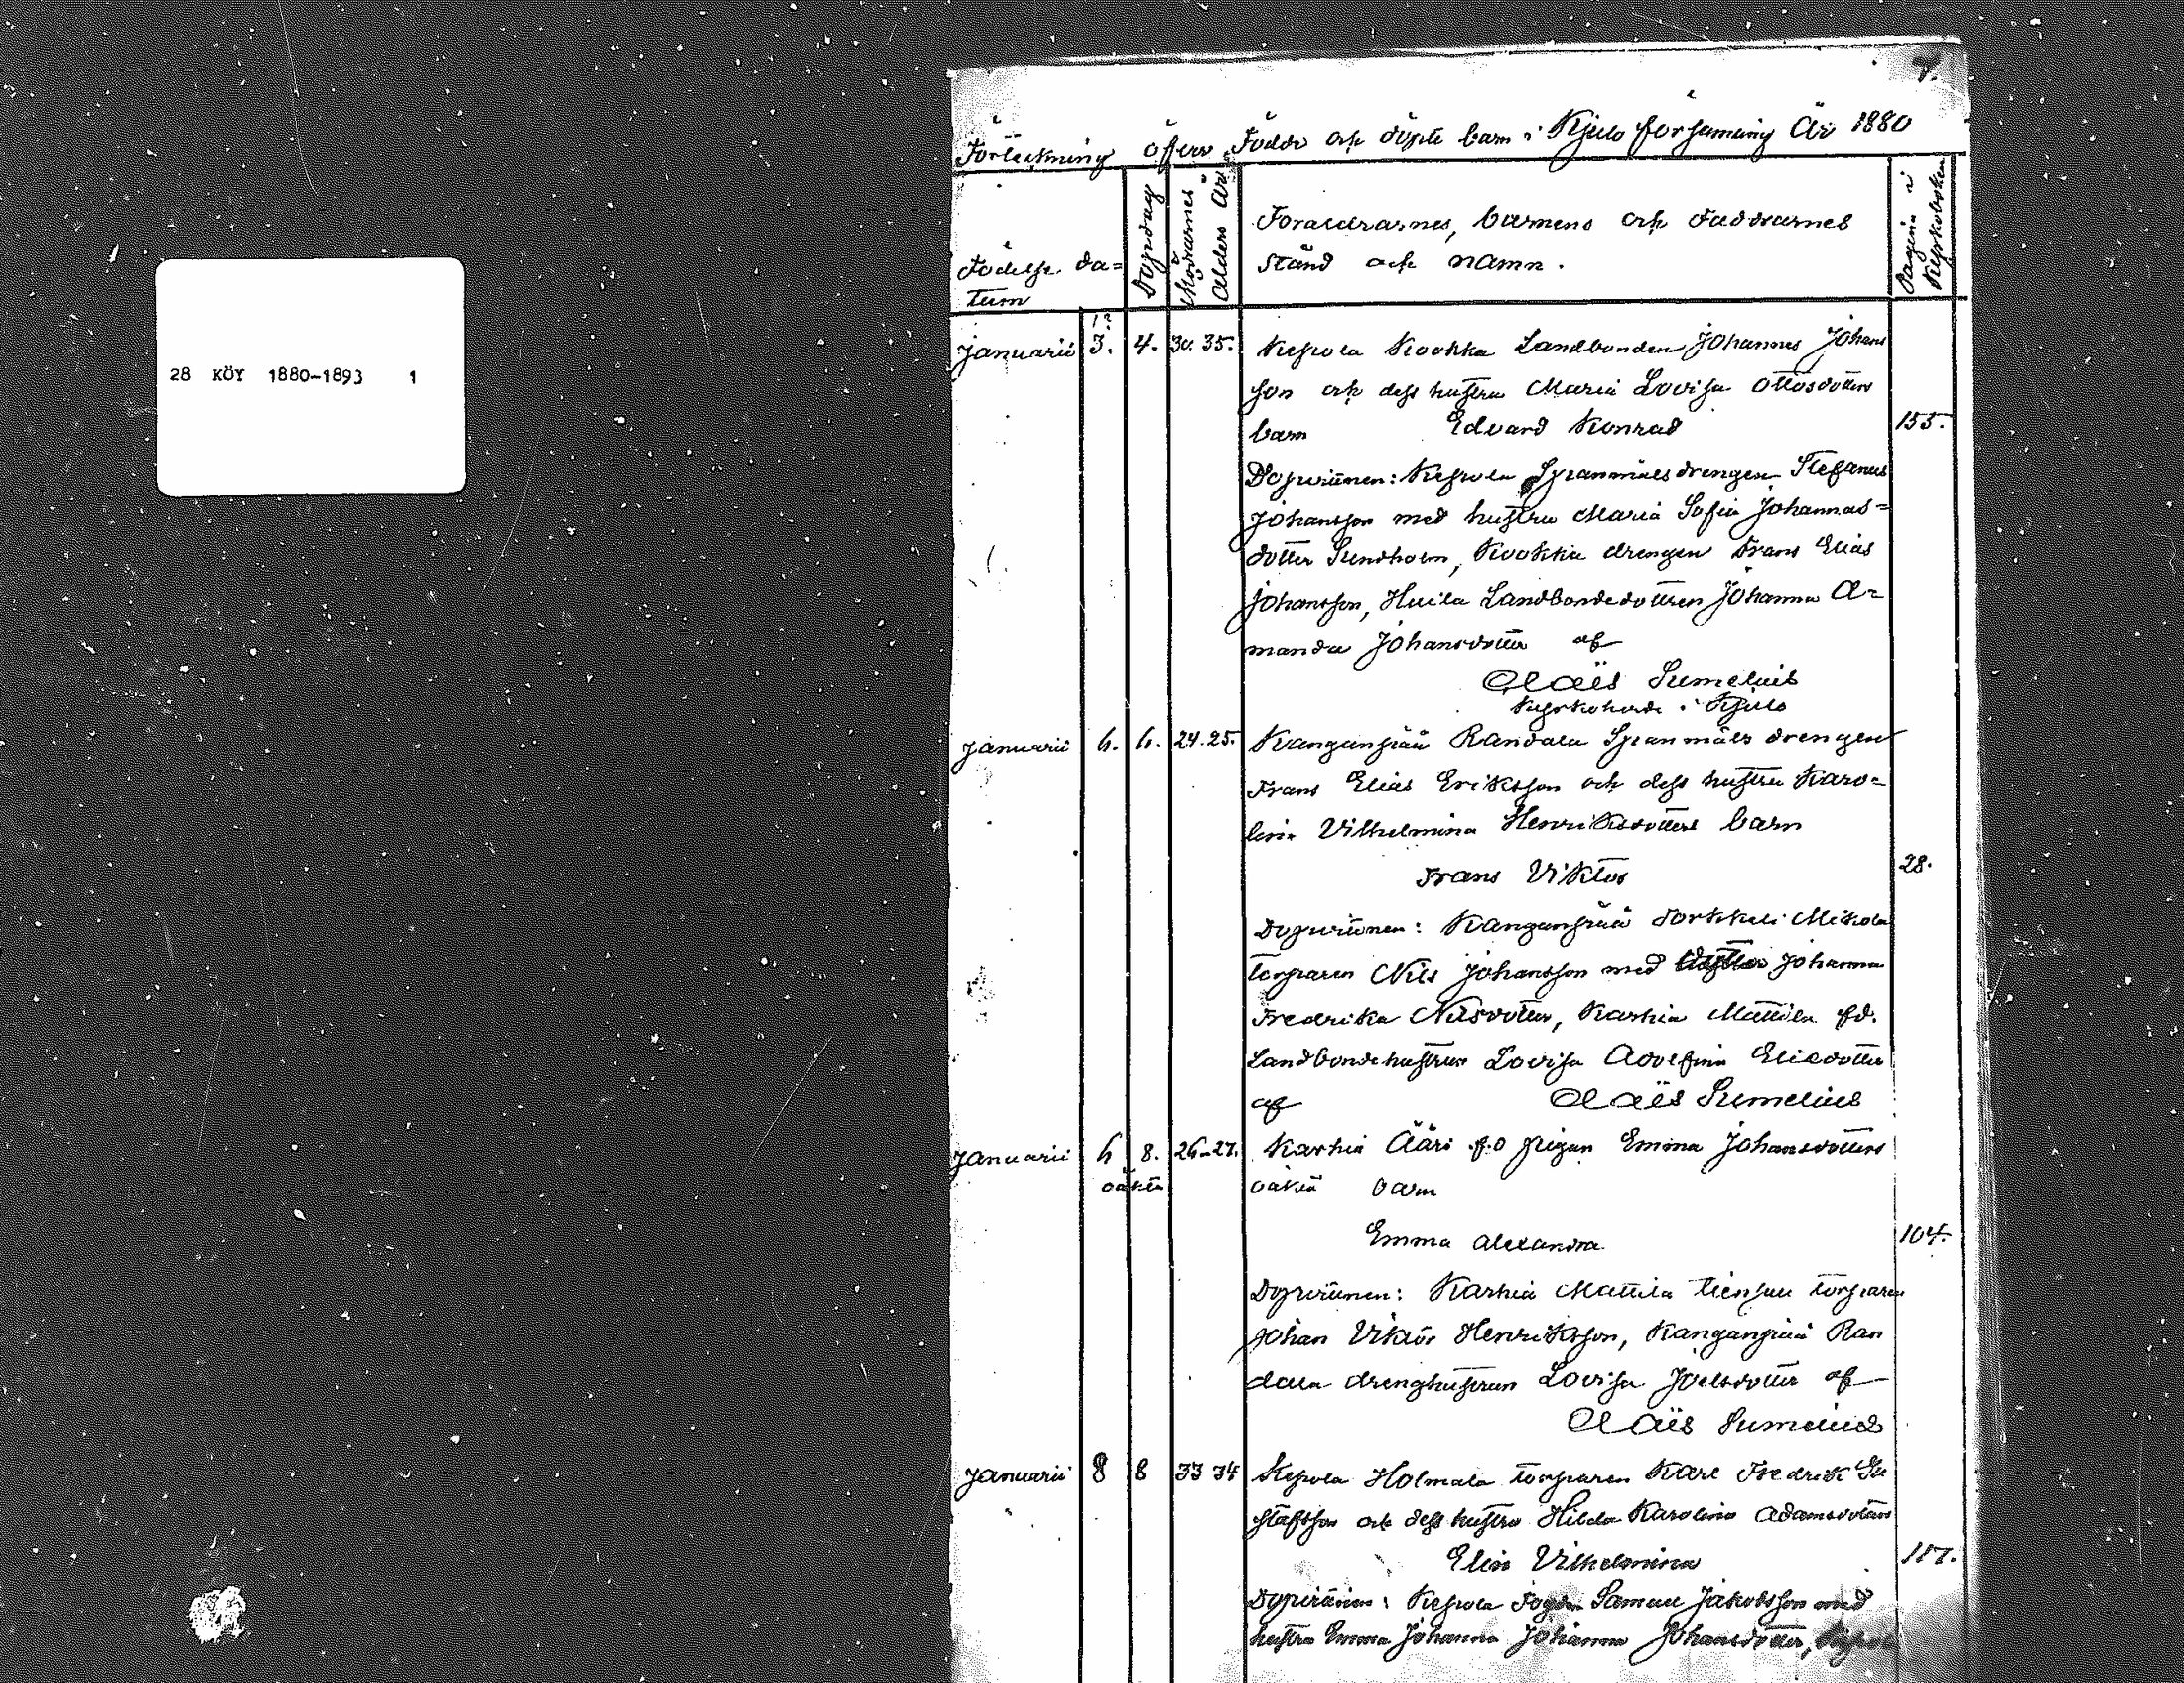 1.
28 KÖY 1880-1893 1
Förteckning öfver Födde och döpte barn i Kjulo församling År 1880
Födelse da=
tum
Dopdag
Mödrarnes
Ålders år
Föraeldrarnes, barnens och Faddrarnes
stånd och namn.
Pagina i
Kyrkoboken
1?
Januarii 3. 4. 30. 35. Kepola Kookka Landbonden Johannes Johans
son och dess hustru Maria Lovisa Ottosdotters
barn Edvard Konrad 155.
Dopvitnen: Kepola Spanmålsdrengen Stefanus
Johansson med hustru Maria Sofia Johannas=
dotter Sundholm, Kookka drengen Frans Elias
Johansson, Huila Landbondedottren Johanna A=
manda Johansdotter af
Claës Sumelius
Kyrkoherde i Kjulo
Januarii 6. 6. 24. 25. Kanganpää Randala Spanmåls drengen
Frans Elias Eriksson och dess hustru Karo=
lina Vilhelmina Henriksdotters barn
Frans Viktor 28.
Dopvitnen: Kanganpää Torkkeli Mikola
torparen Nils Johansson med Johanna
Fredrika Nilsdotter, Karhia Mattila fd.
Landbondehustrun Lovisa Adolfina Eliedotter
af Claës Sumelius
Januarii 6 8. 26-27. Karhia Ääri f.d pigan Emma Johansdotters
oäkta oäkta barn
Emma Alexandra 104.
Dopvitnen: Karhia Mattila Tiensuu torparen
Johan Viktor Henriksson, Kanganpää Ran
dala drenghustrun Lovisa Joelsdotter af
Claës Sumelius
Januarii 8 8 33 34 Kepola Holmala torparen Karl Fredrik Gu
stafsson och dess hustru Hilda Karolina Adamsdotters
Elin Vilhelmina 117.
Dopvitnen: Kepola Fogden Samuel Jakobsson med
hustru Emma Johanna Johanna Johansdotter, Kepola